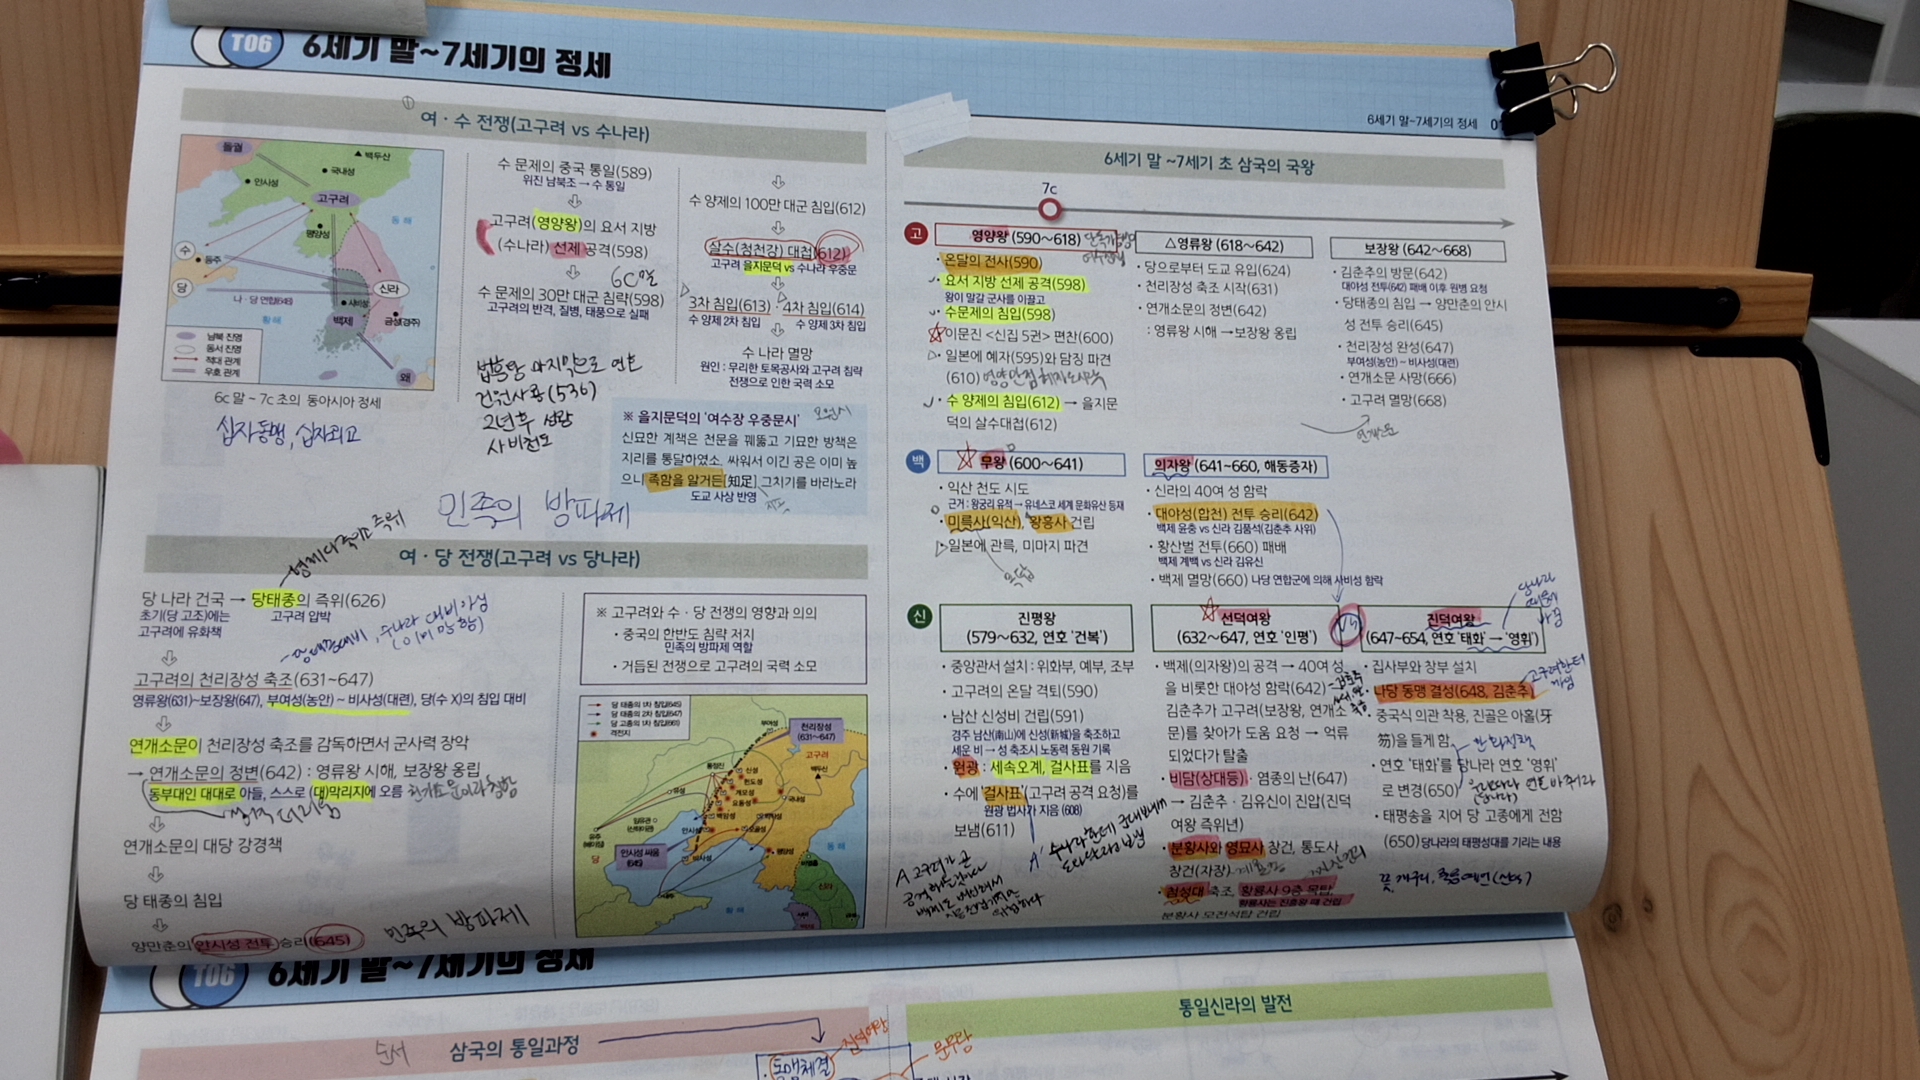 T06 6세기 말~7세기의 정세
여·수 전쟁(고구려 vs 수나라)
돌궐
백두산
국내성
안시성
고구려
동해
평양성
수
등주
당
나·당 연합(648)
신라
사비성
황해
백제
금성(경주)
왜
남북 진영
동서 진영
적대 관계
우호 관계
6c 말 ~ 7c 초의 동아시아 정세
십자동맹, 십자외교
수 문제의 중국 통일(589)
위진 남북조 → 수 통일
고구려(영양왕)의 요서 지방
(수나라) 선제 공격(598)
6C말
수 문제의 30만 대군 침략(598)
고구려의 반격, 질병, 태풍으로 실패
법흥왕 마지막으로 연호
건원사용(536)
2년후 성왕
사비천도
수 양제의 100만 대군 침입(612)
살수(청천강) 대첩(612)
고구려 을지문덕 vs 수나라 우중문
3차 침입(613) · 4차 침입(614)
수 양제 2차 침입 수 양제 3차 침입
수 나라 멸망
원인 : 무리한 토목공사와 고구려 침략
전쟁으로 인한 국력 소모
※ 을지문덕의 '여수장 우중문시'
오언시
신묘한 계책은 천문을 꿰뚫고 기묘한 방책은
지리를 통달하였소. 싸워서 이긴 공은 이미 높
으니 족함을 알거든[知足] 그치기를 바라노라
도교 사상 반영
민족의 방파제
여·당 전쟁(고구려 vs 당나라)
형제 다 죽이고 즉위
당 나라 건국 → 당태종의 즉위(626)
초기(당 고조)에는 고구려 압박
고구려에 유화책
고구려의 천리장성 축조(631~647)
영류왕(631)~보장왕(647), 부여성(농안) ~ 비사성(대련), 당(수 X)의 침입 대비
연개소문이 천리장성 축조를 감독하면서 군사력 장악
→ 연개소문의 정변(642) : 영류왕 시해, 보장왕 옹립
동부대인 대대로 아들, 스스로 (대)막리지에 오름
연개소문의 대당 강경책
당 태종의 침입
양만춘의 안시성 전투 승리(645)
민족의 방파제
※ 고구려와 수·당 전쟁의 영향과 의의
· 중국의 한반도 침략 저지
민족의 방파제 역할
· 거듭된 전쟁으로 고구려의 국력 소모
당 태종의 1차 침입(645)
당 태종의 2차 침입(647)
당 고종의 1차 침입(661)
격전지
천리장성
(631~647)
부여성
고구려
백두산
신성
국내성
안시성 싸움
(645)
비사성
평양성
당
동해
황해
신라
6세기 말~7세기의 정세
6세기 말 ~7세기 초 삼국의 국왕
7c
고
영양왕 (590~618)
· 온달의 전사(590)
· 요서 지방 선제 공격(598)
왕이 말갈 군사를 이끌고
· 수문제의 침입(598)
· 이문진 <신집 5권> 편찬(600)
· 일본에 혜자(595)와 담징 파견
(610)
· 수 양제의 침입(612) → 을지문
덕의 살수대첩(612)
△영류왕 (618~642)
· 당으로부터 도교 유입(624)
· 천리장성 축조 시작(631)
· 연개소문의 정변(642)
: 영류왕 시해 → 보장왕 옹립
보장왕 (642~668)
· 김춘추의 방문(642)
대야성 전투(642) 패배 이후 원병 요청
· 당태종의 침입 → 양만춘의 안시
성 전투 승리(645)
· 천리장성 완성(647)
부여성(농안) ~ 비사성(대련)
· 연개소문 사망(666)
· 고구려 멸망(668)
백
무왕 (600~641)
· 익산 천도 시도
근거 : 왕궁리 유적 → 유네스코 세계 문화유산 등재
· 미륵사(익산), 왕흥사 건립
· 일본에 관륵, 미마지 파견
의자왕 (641~660, 해동증자)
· 신라의 40여 성 함락
· 대야성(합천) 전투 승리(642)
백제 윤충 vs 신라 김품석(김춘추 사위)
· 황산벌 전투(660) 패배
백제 계백 vs 신라 김유신
· 백제 멸망(660) 나당 연합군에 의해 사비성 함락
신
진평왕
(579~632, 연호 '건복')
· 중앙관서 설치 : 위화부, 예부, 조부
· 고구려의 온달 격퇴(590)
· 남산 신성비 건립(591)
경주 남산(南山)에 신성(新城)을 축조하고
세운 비 → 성 축조시 노동력 동원 기록
· 원광 : 세속오계, 걸사표를 지음
· 수에 '걸사표'(고구려 공격 요청)를
원광 법사가 지음 (608)
보냄(611)
선덕여왕
(632~647, 연호 '인평')
· 백제(의자왕)의 공격 → 40여 성
을 비롯한 대야성 함락(642) →
김춘추가 고구려(보장왕, 연개소
문)를 찾아가 도움 요청 → 억류
되었다가 탈출
· 비담(상대등) · 염종의 난(647)
→ 김춘추 · 김유신이 진압(진덕
여왕 즉위년)
· 분황사와 영묘사 창건, 통도사
창건(자장)
· 첨성대 축조, 황룡사 9층 목탑,
황룡사는 진흥왕 때 건립
분황사 모전석탑 건립
VS
진덕여왕
(647~654, 연호 '태화' → '영휘')
· 집사부와 창부 설치
· 나당 동맹 결성(648, 김춘추)
· 중국식 의관 착용, 진골은 아홀(牙
笏)을 들게 함
· 연호 '태화'를 당나라 연호 '영휘'
로 변경(650)
· 태평송을 지어 당 고종에게 전함
(650) 당나라의 태평성대를 기리는 내용
한화정책
T06 6세기 말~7세기의 정세
삼국의 통일과정
통일신라의 발전
동맹체결
진덕여왕
문무왕